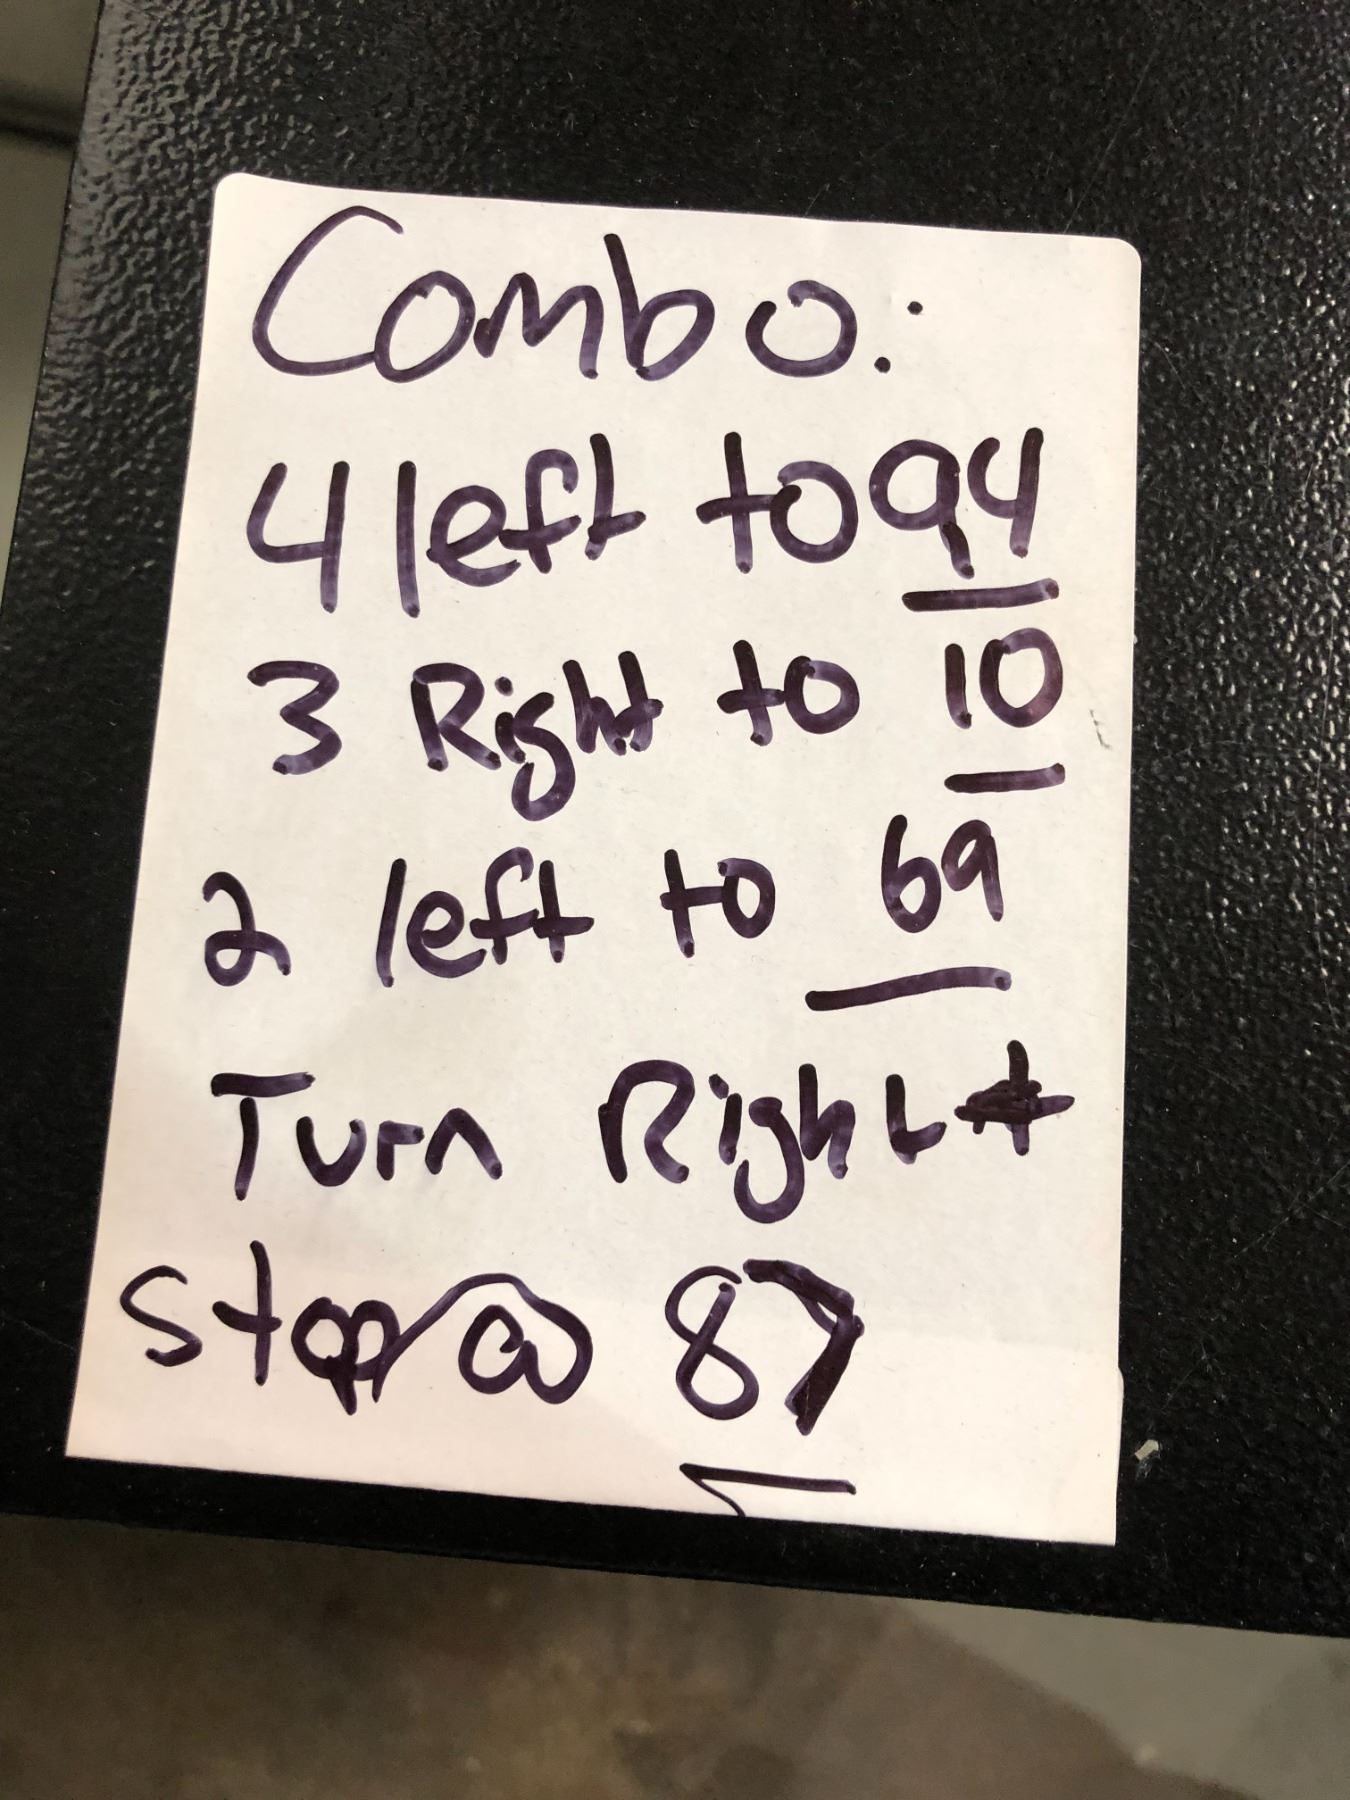 Combo:
4 left to 94
3 Right to 10
2 left to 69
Turn Right +
stop @ 87